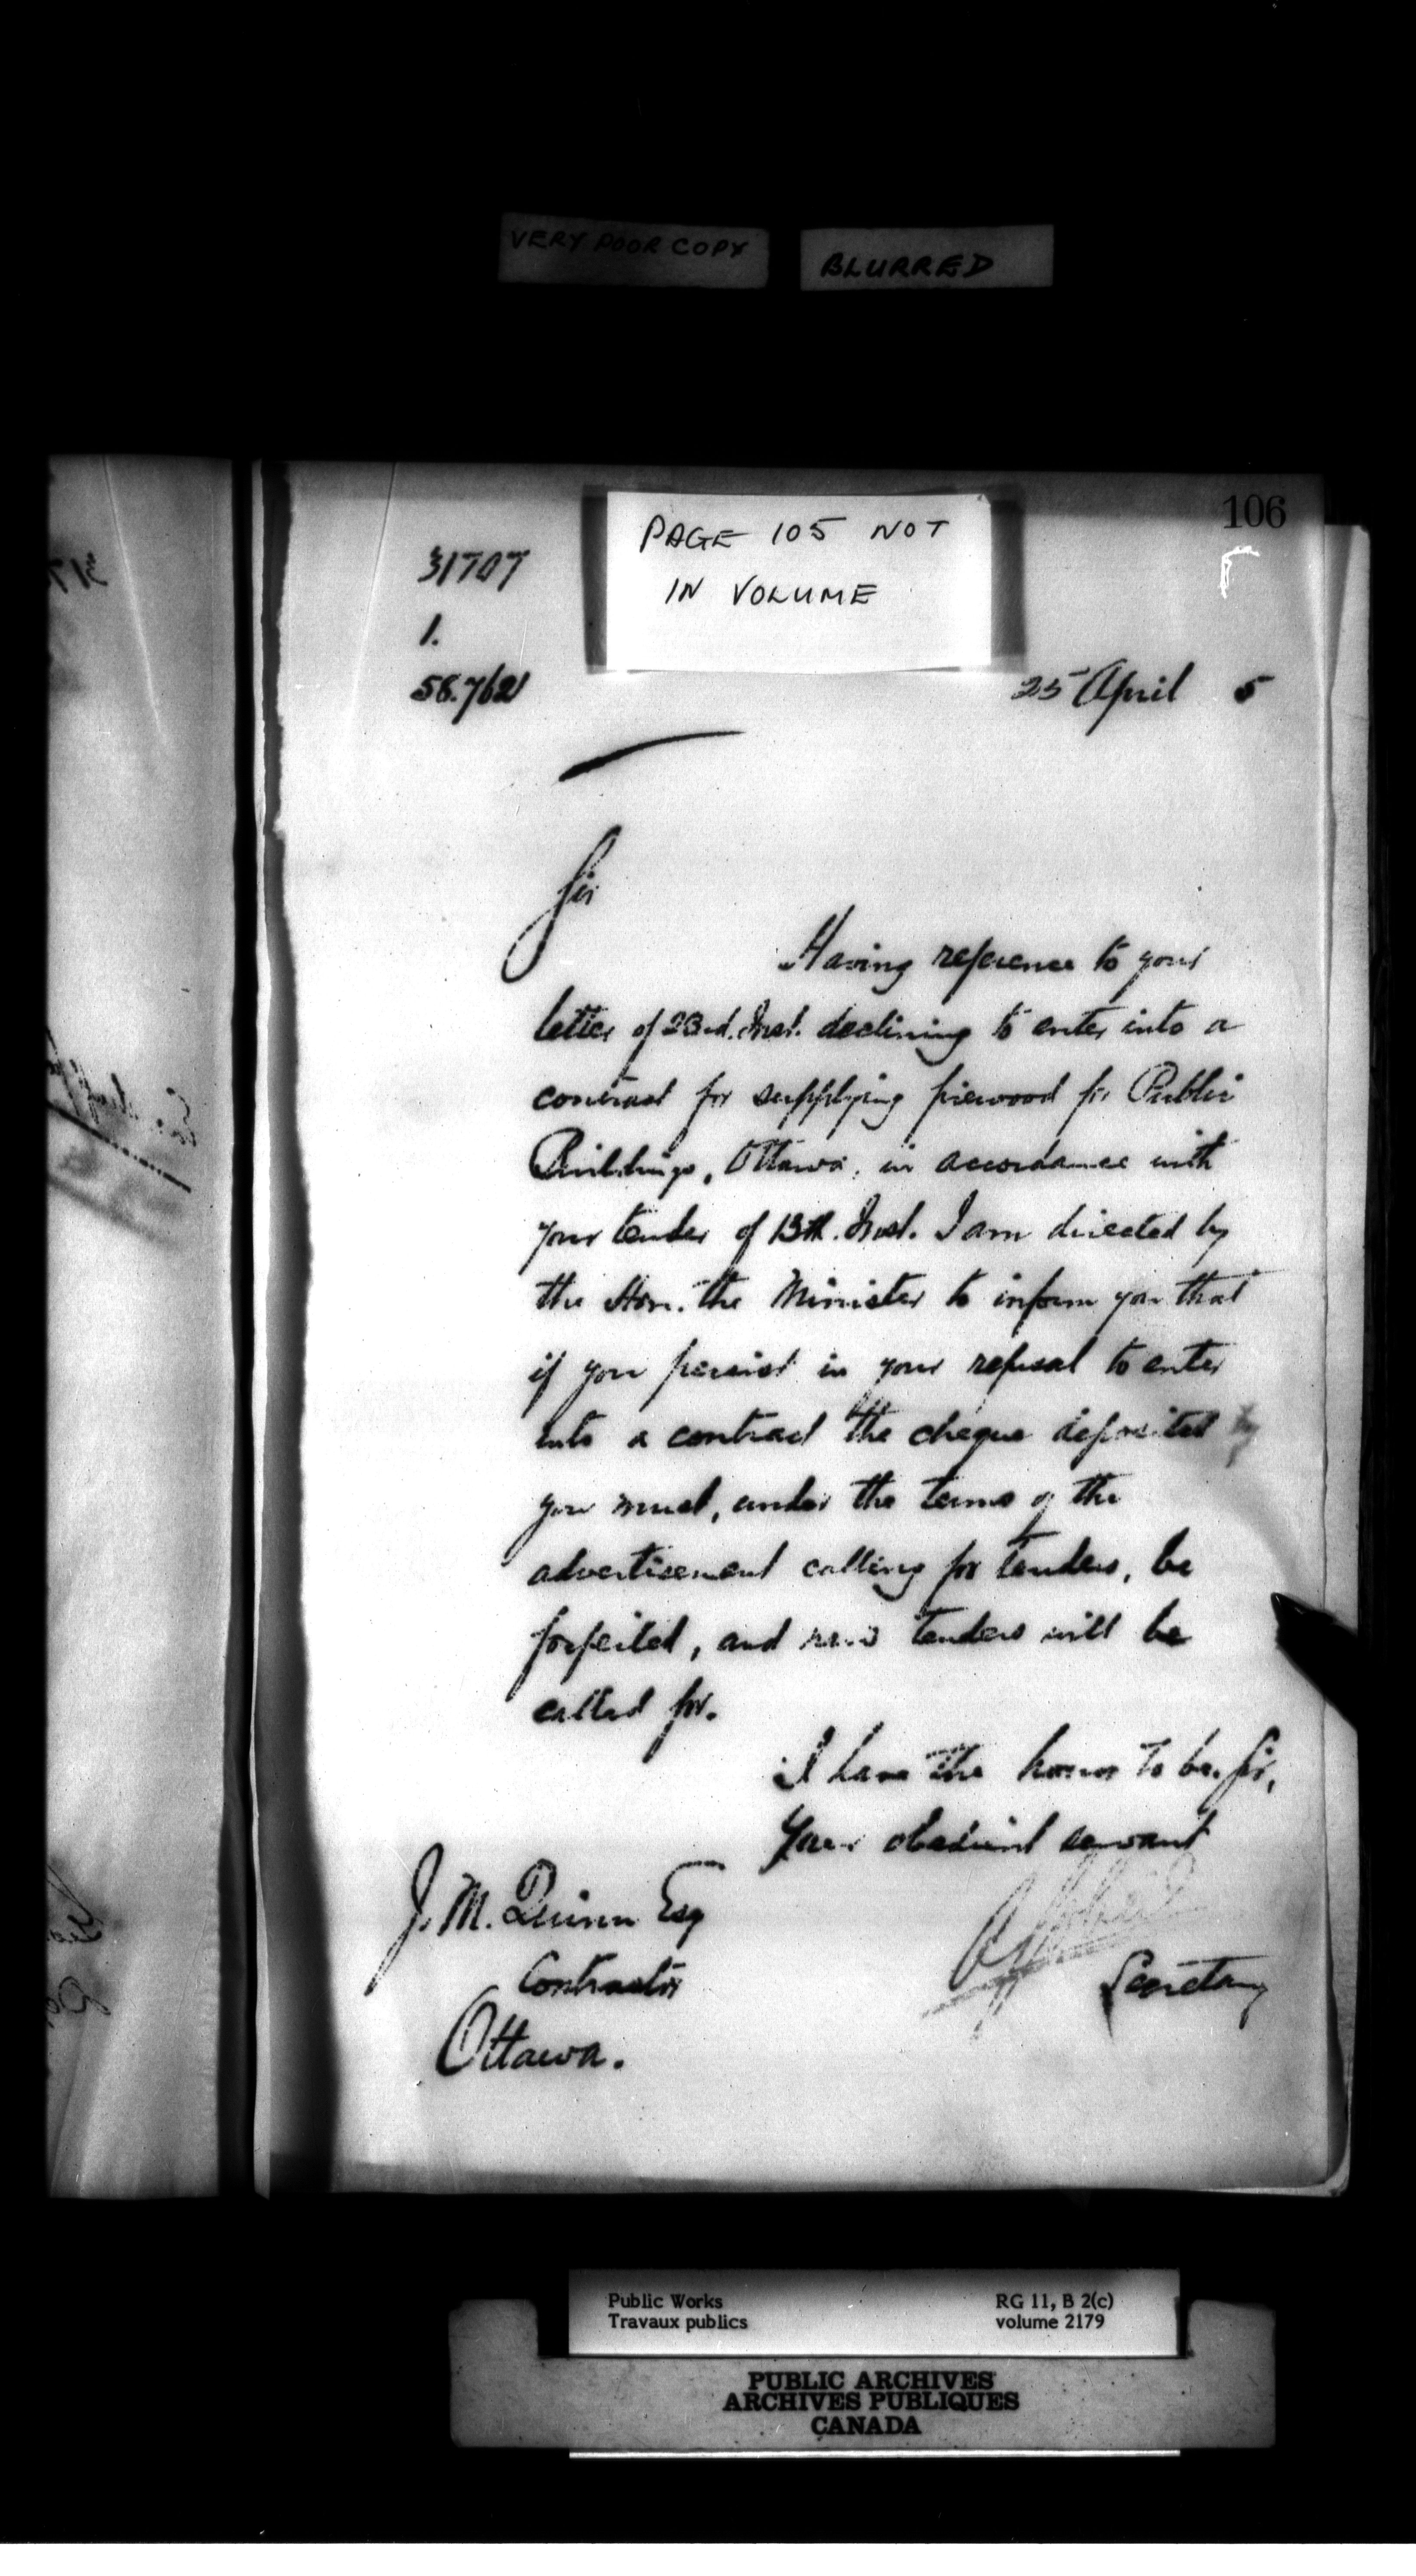 VERY POOR COPY
BLURRED
106
PAGE 105 NOT
IN VOLUME
31707
1.
25 April 5
Sir
Having reference to your
letter of 23rd. Inst. declining to enter into a
contract for supplying firewood for Public
Buildings, Ottawa, in accordance with
your tender of 13th. Inst. I am directed by
the Hon. the Minister to inform you that
if you persist in your refusal to enter
into a contract the cheque deposited by
you must, under the terms of the
advertisement calling for tenders, be
forfeited, and new tenders will be
called for.
I have the honor to be, Sir,
Your obedient servant
J. M. Quinn Esq
Contractor
Secretary
Ottawa.
Public Works
Travaux publics
RG 11, B 2(c)
volume 2179
PUBLIC ARCHIVES
ARCHIVES PUBLIQUES
CANADA